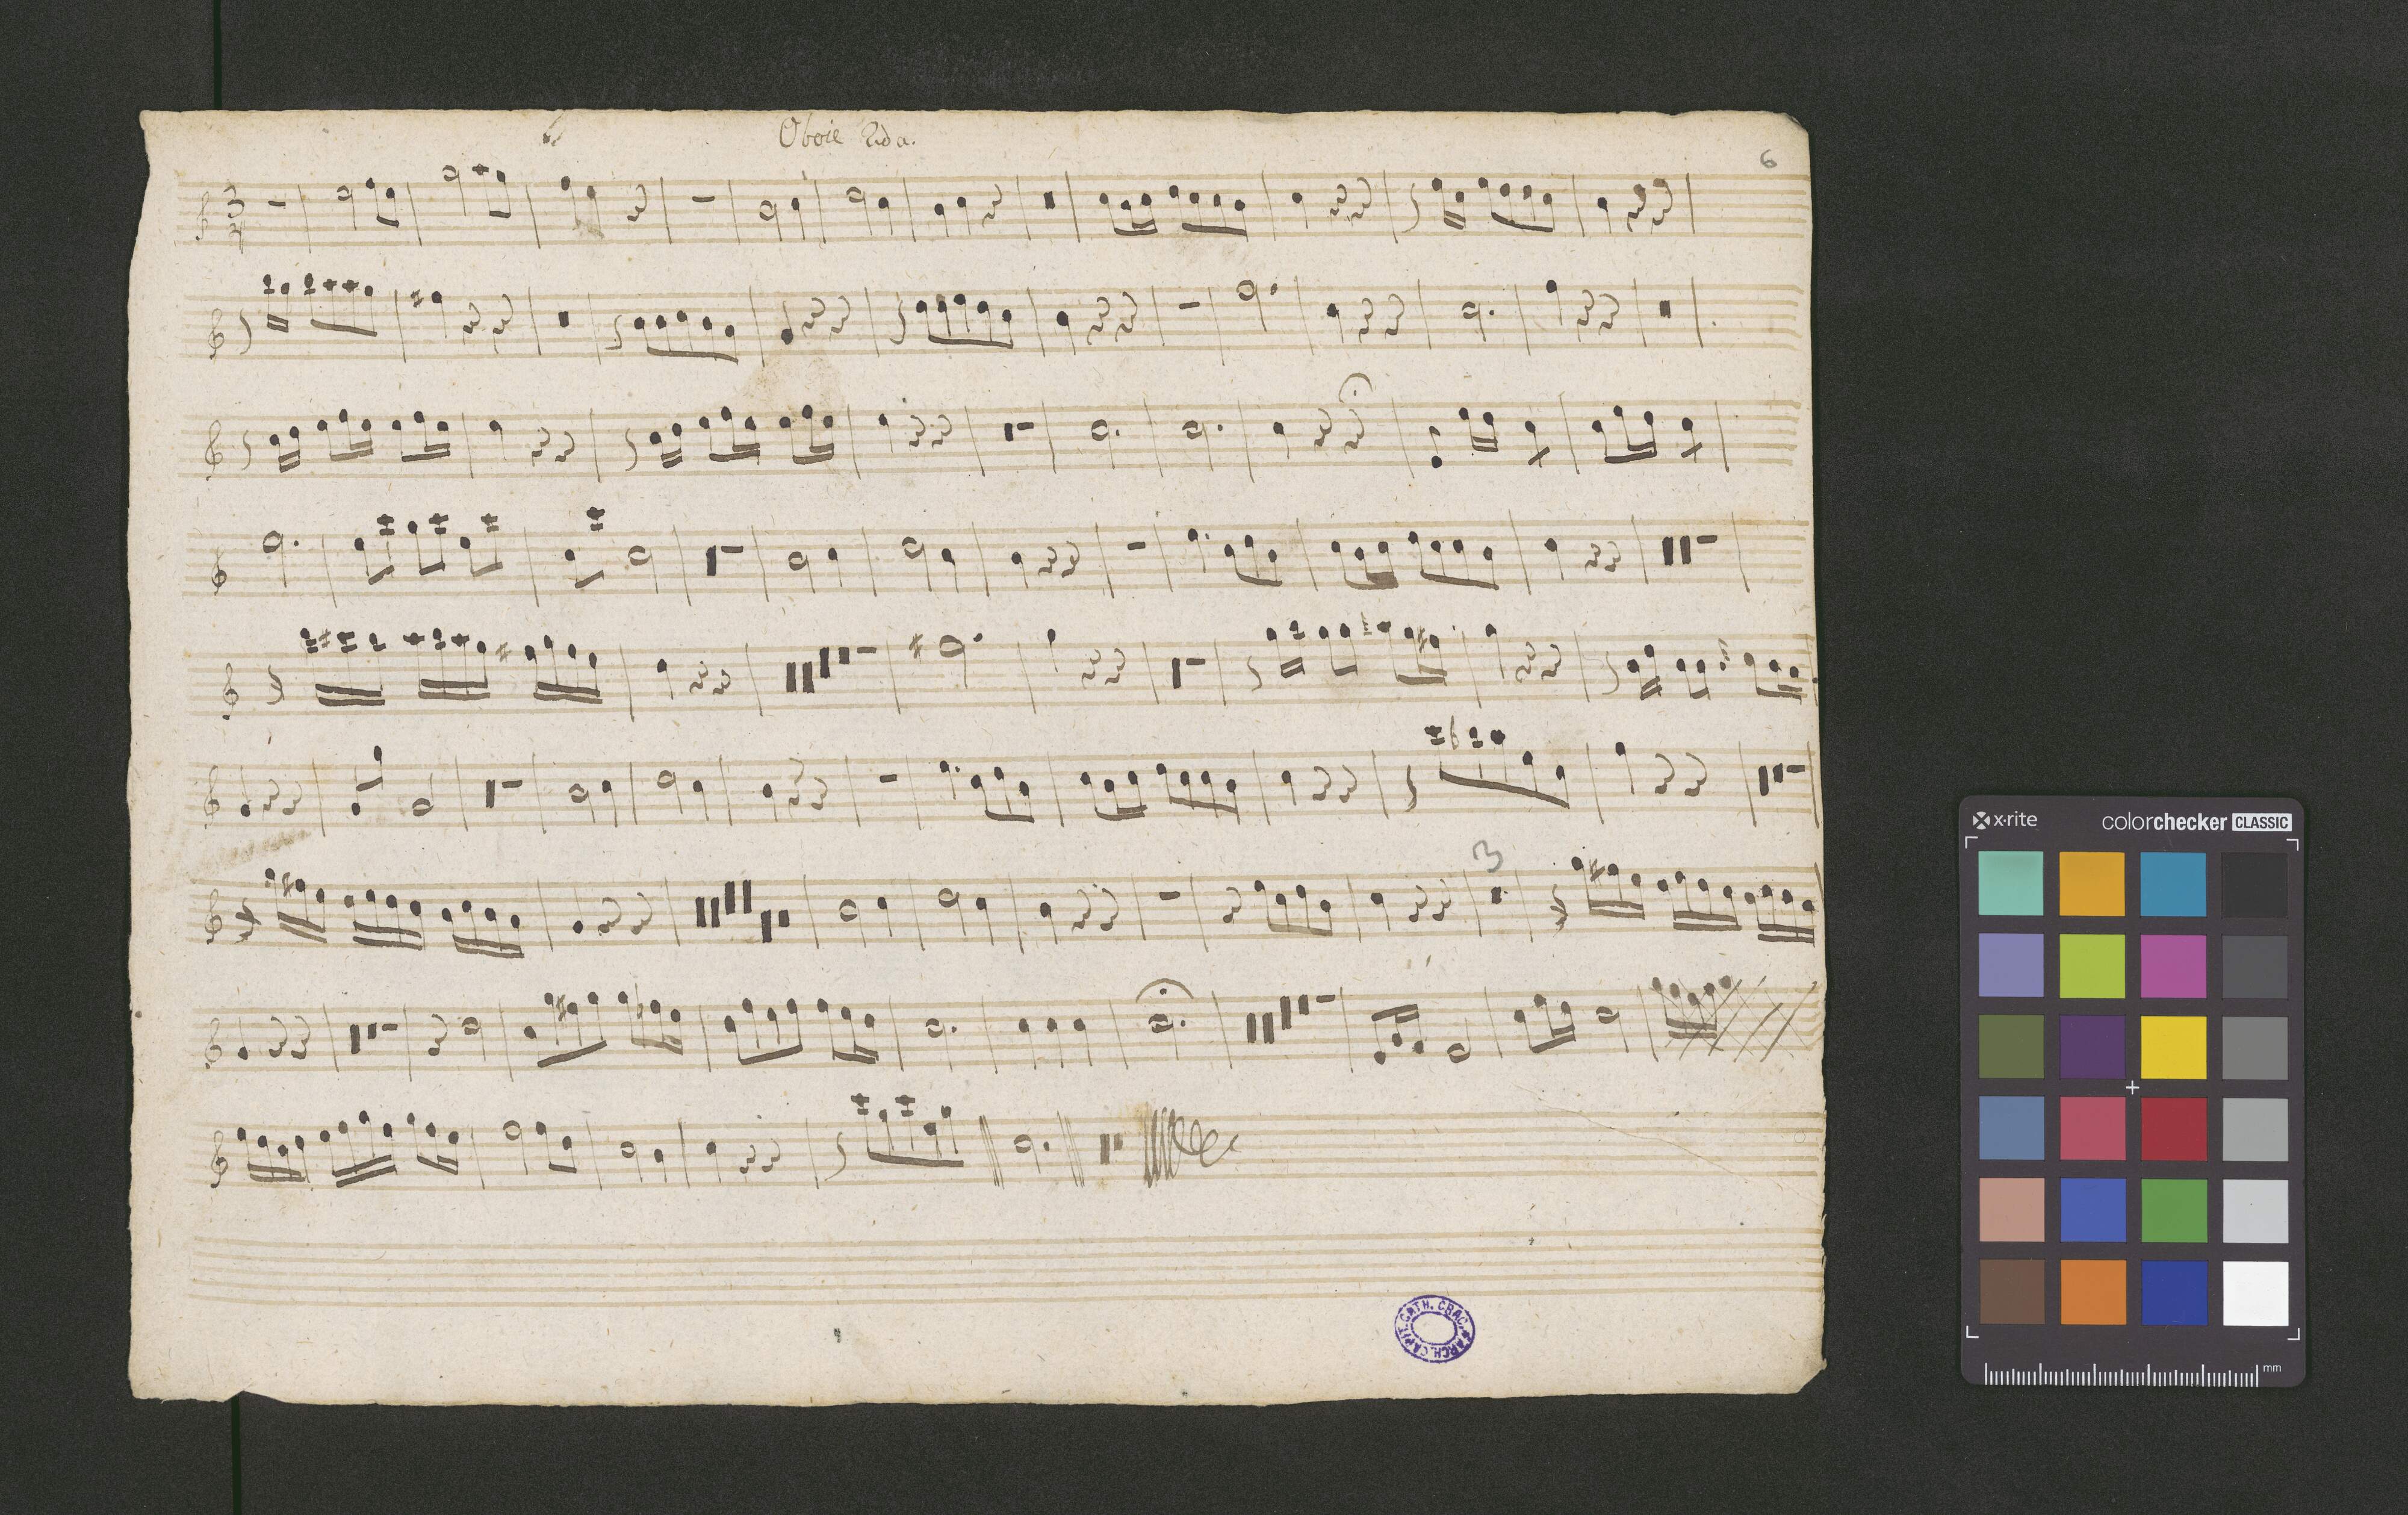 Oboie 2da.
6
3
ARCH. CAPIT. CATH. CRAC.
x·rite
colorchecker CLASSIC
mm